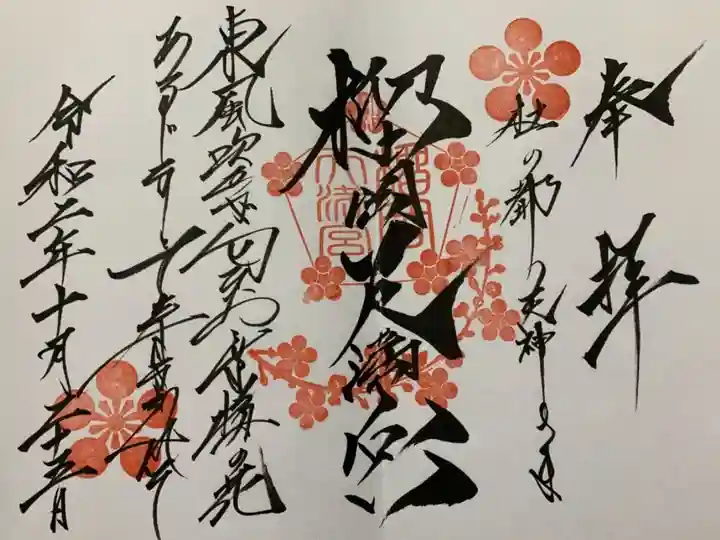 奉拝
杜の都の天神さま
榴岡天満宮
東風吹かば匂おこせよ梅の花
あるじなしとて春な
令和二年十月二十五日